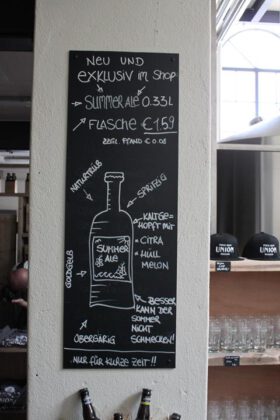 NEU UND
EXKLUSIV im SHOP
SUMMER ALE 0.33L
FLASCHE € 1.59
ZZGL. PFAND € 0.08
NATURTRÜB
SPRITZIG
KALTGE-
HOPFT MIT
- CITRA
- HÜLL
MELON
SUMMER
ALE
GOLDGELB
BESSER
KANN DER
SOMMER
NICHT
SCHMECKEN!
OBERGÄRIG
...NUR FÜR KURZE ZEIT!!
UNION
UNION